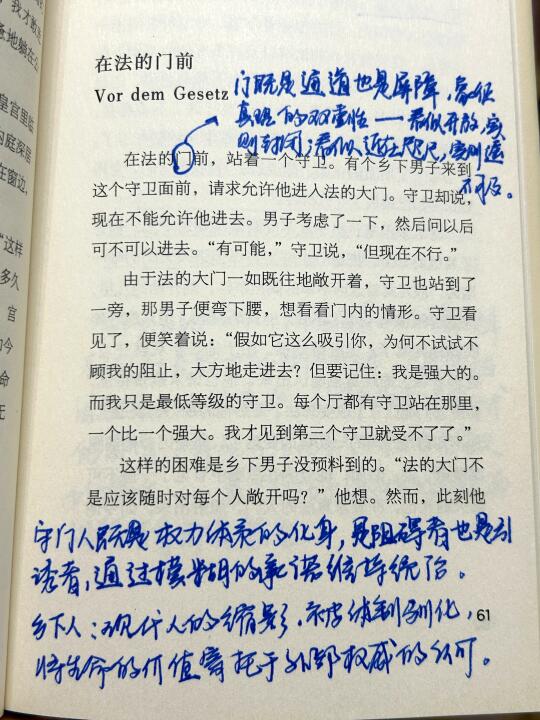 在法的门前
Vor dem Gesetz
门既是通道也是屏障，象征
真理的双重性——看似开放，实
则封闭；看似近在咫尺，实则遥
不可及。
在法的门前，站着一个守卫。有个乡下男子来到
这个守卫面前，请求允许他进入法的大门。守卫却说，
现在不能允许他进去。男子考虑了一下，然后问以后
可不可以进去。“有可能，”守卫说，“但现在不行。”
由于法的大门一如既往地敞开着，守卫也站到了
一旁，那男子便弯下腰，想看看门内的情形。守卫看
见了，便笑着说：“假如它这么吸引你，为何不试试不
顾我的阻止，大方地走进去？但要记住：我是强大的。
而我只是最低等级的守卫。每个厅都有守卫站在那里，
一个比一个强大。我才见到第三个守卫就受不了了。”
这样的困难是乡下男子没预料到的。“法的大门不
是应该随时对每个人敞开吗？”他想。然而，此刻他
守门人既是权力体系的化身，是阻碍者也是引
诱者，通过模糊的承诺维持统治。
乡下人：现代人的缩影，被体制驯化，
将生命的价值寄托于外部权威的认可。
61
皇宫里临
内庭深居
在窗边，
“这样
多久
宫
如今
命
无